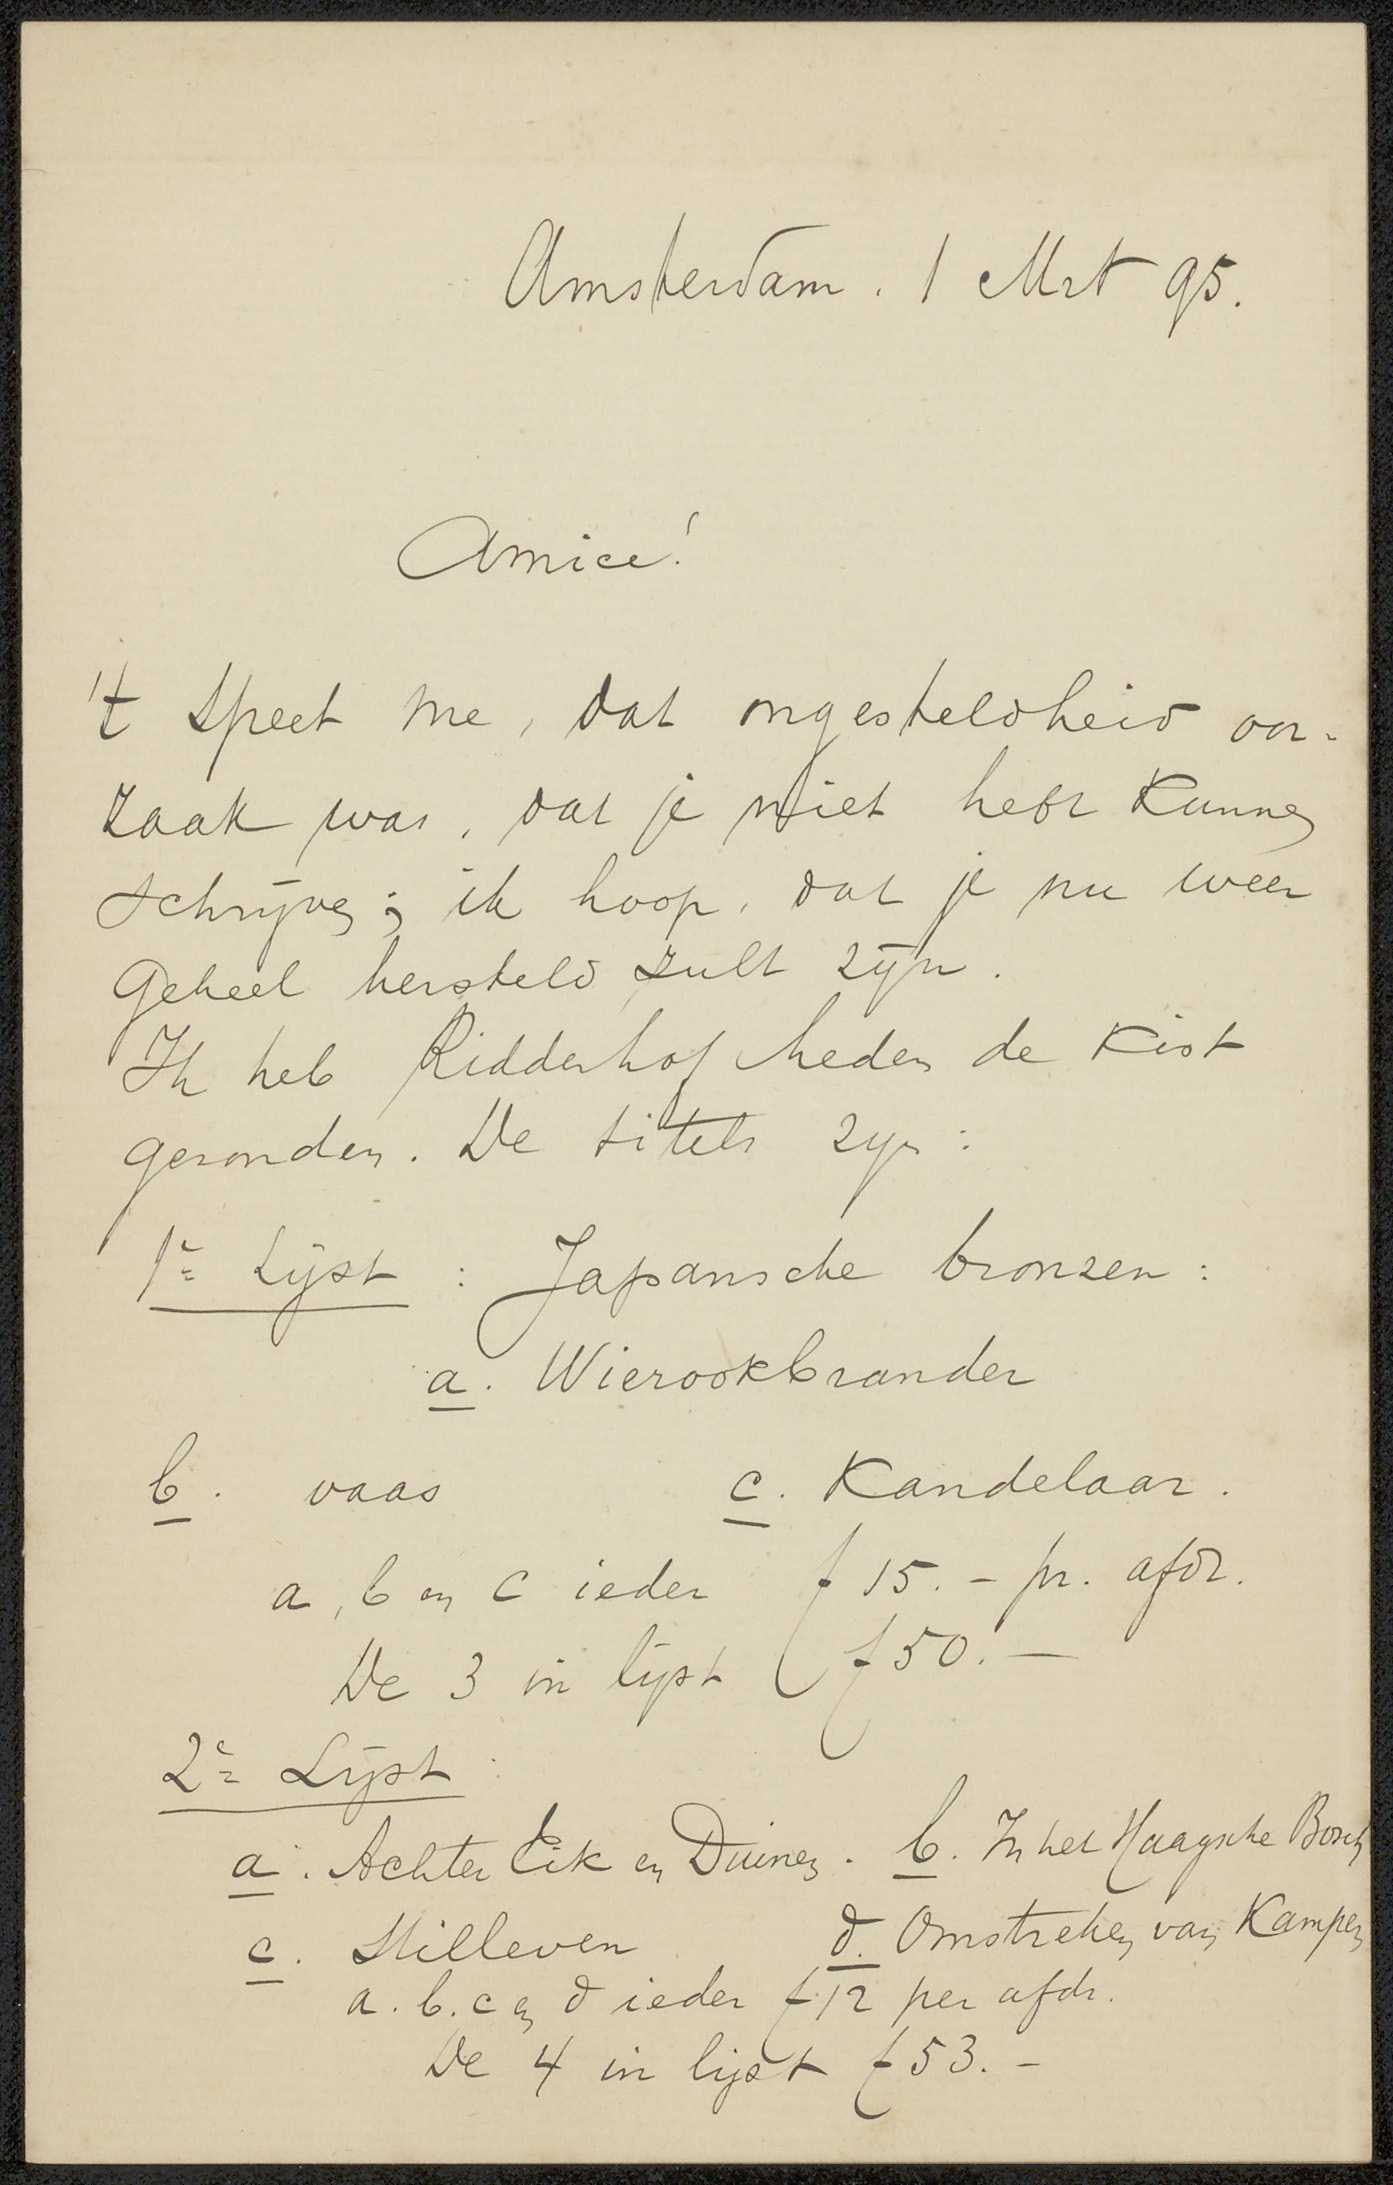 Amsterdam. 1 Mrt 95.
Amice!
't Speet me, dat ongesteldheid oor-
zaak was, dat je niet hebt kunnen
schrijven; ik hoop, dat je nu weer
geheel hersteld zult zijn.
Ik heb Ridderhof heden de kist
gezonden. De titels zijn:
1e Lijst: Japansche bronzen:
a. Wierookbrander
b. vaas c. Kandelaar.
a, b en c ieder f 15.- pr. afdr.
De 3 in lijst f 50.—
2e Lijst:
a. Achter Eik en Duinen. b. In het Haagsche Bosch
c. Stilleven d. Omstreken van Kampen
a. b. c en d ieder f 12 per afdr.
De 4 in lijst f 53.-